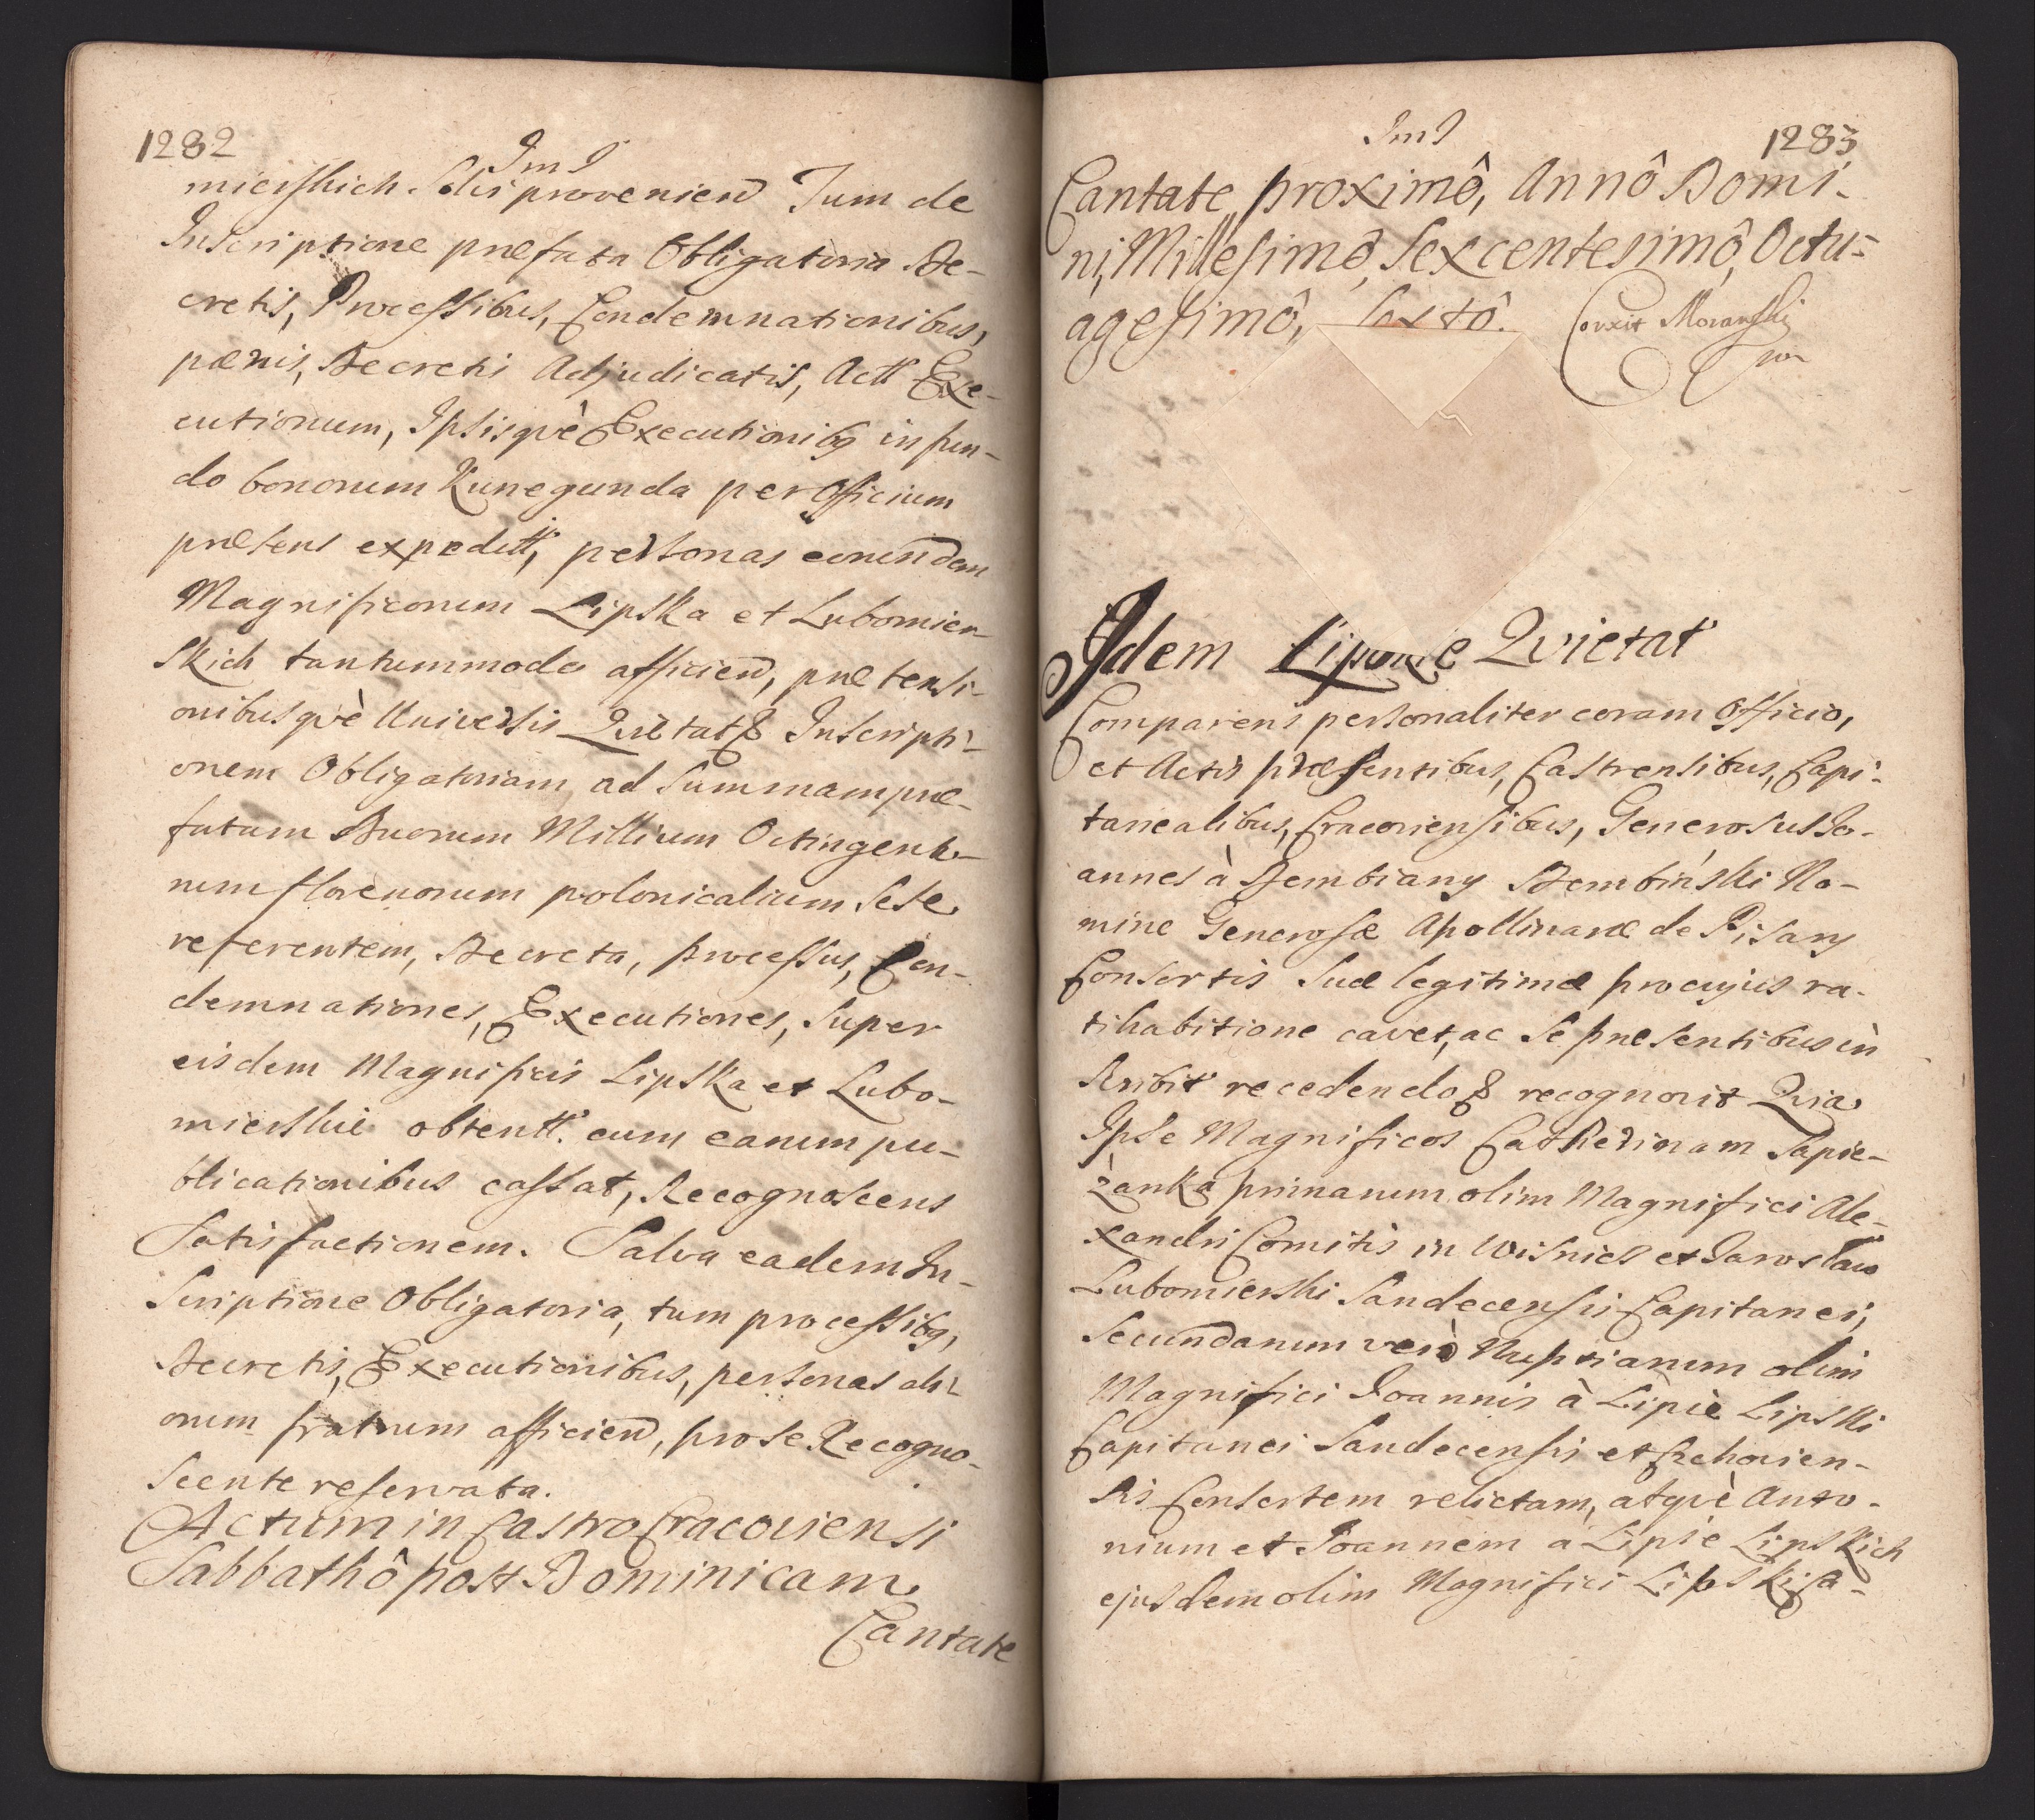 1282
ImJ
mierskich Solis provenien Tum de
Inscriptione præfata Obligatoria De-
cretis, Processibus, Condemnationibus,
pænis, Decretis Adjudicatis, Actt Exe-
cutionum, Ipsisquè Executionibq in fun-
do bonorum Kunegunda per Officium
præsens expeditt, personas eorundem
Magnificorum Lipska et Lubomier-
skich tantummodo afficien, prætensi-
onibusquè Universis Quietat & Inscripti-
onem Obligatoriam ad Summam præ-
fatam Duorum Millium Octingento-
rum florenorum polonicalium Sese
referentem, Decreta, processus, Con-
demnationes, Executiones, Super
eisdem Magnificis Lipska et Lubo-
mierskie obtentt. cum earum pu-
blicationibus cassat, Recognoscens
Satisfactionem. Salva eadem In-
scriptione Obligatoria, tum processibq,
Decretis, Executionibus, personas ali-
orum fratrum afficien, pro se Recogno-
scente reservata.
Actum in Castro Cracoviensi
Sabbathô post Dominicam
Cantate
ImJ
1283
Cantate proximô, Annô Domi-
ni, Millesimô, Sexcentesimô, Octu-
agesimô, Sextô. Corxit Moranski
Idem Lipskie Quietat
Comparens personaliter coram Officio,
et Actis præsentibus, Castrensibus, Capi-
tanealibus, Cracoviensibus, Generosus Jo-
annes à Dembiany Dembiński No-
mine Generosæ Apollinaræ de Pisary
Consortis Suæ legitimæ pro cujus ra-
tihabitione cavet, ac Se præsentibus in
scribit recedendo & recognovit Quia
Ipse Magnificos Catherinam Sapie-
żanka primarum olim Magnifici Ale-
xandri Comitis in Wisnicz et Jaroslaw
Lubomierski Sandecensis Capitanei,
Secundarum verò Nuptiarum olim
Magnifici Joannis à Lipie Lipski
Capitanei Sandecensis et Czchovien-
sis Consortem relictam, atquè Anto-
nium et Joannem a Lipie Lipskich
ejusdem olim Magnifici Lipski Ca-